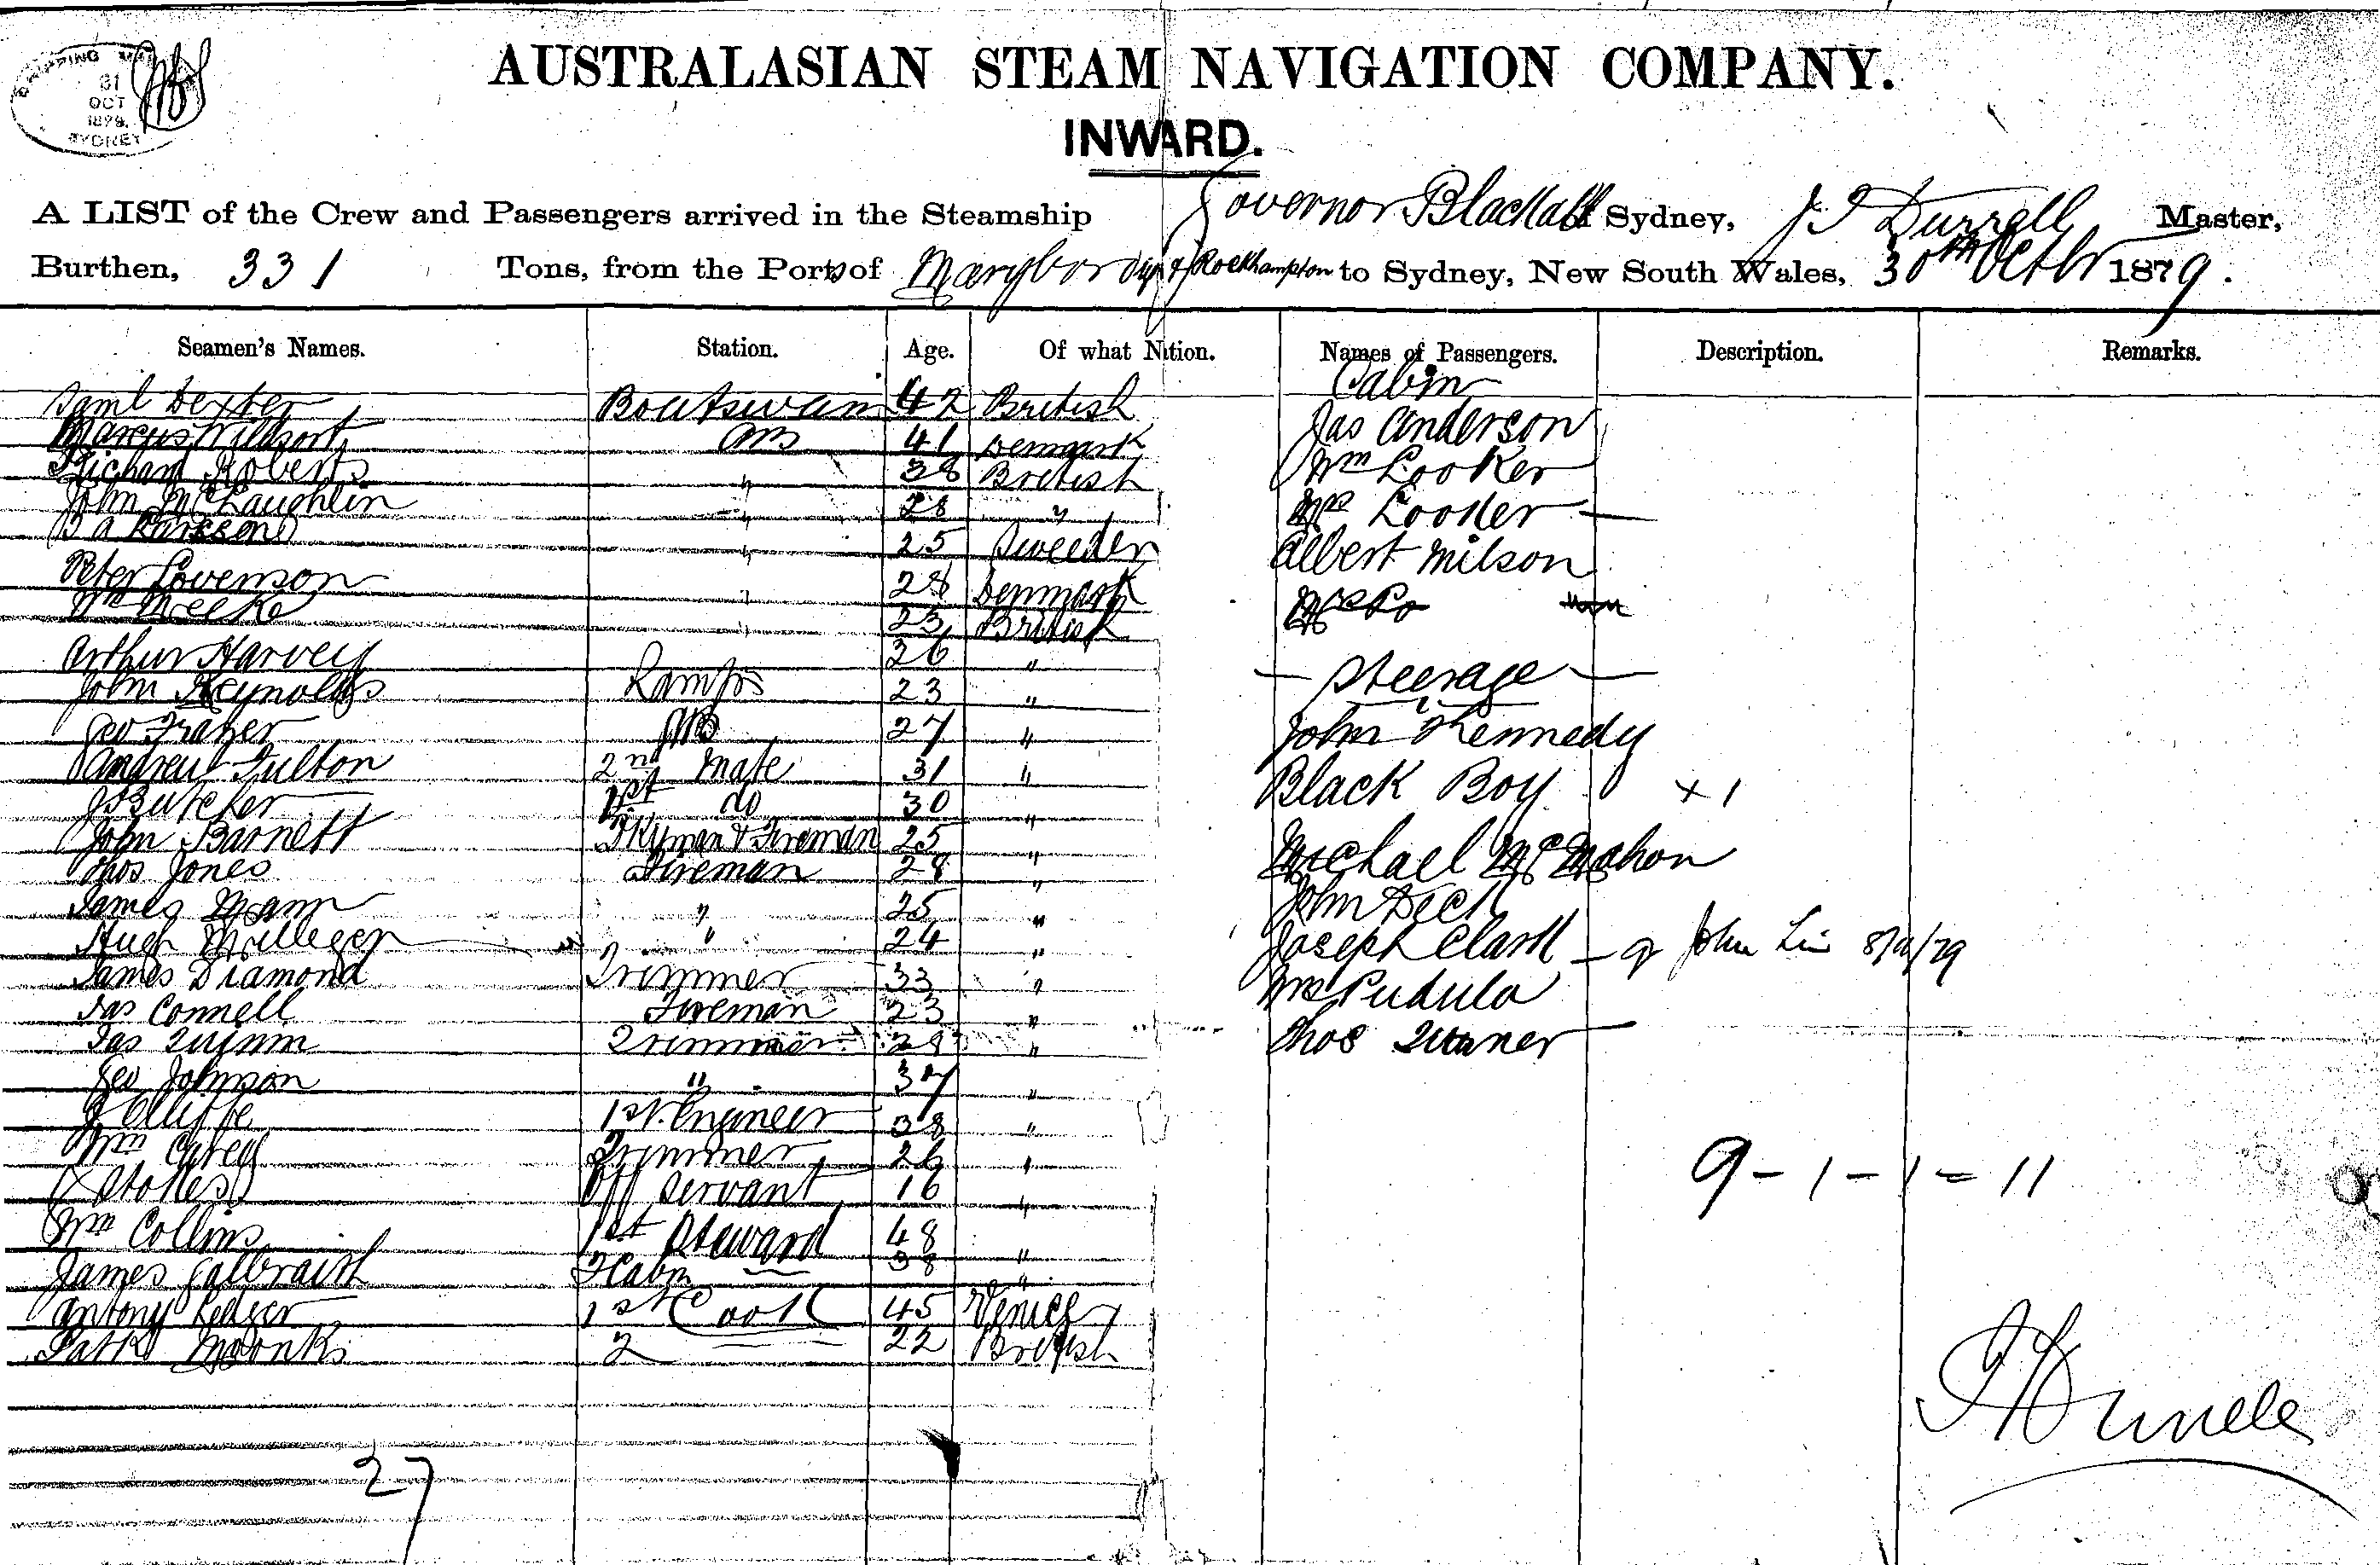 SHIPPING MASTER
31
OCT
1879.
SYDNEY
AUSTRALASIAN STEAM NAVIGATION COMPANY.
INWARD.
A LIST of the Crew and Passengers arrived in the Steamship Governor Blackall of Sydney, J. Durrell Master,
Burthen, 331 Tons, from the Ports of Marybor & Rockhampton to Sydney, New South Wales, 30th Octbr 1879.
Seamen's Names. Station. Age. Of what Nation. Names of Passengers. Description. Remarks.
Cabin
Saml Dexter Boatswan 42 British
Jas Anderson
Marcus AB 41 Denmark
Richard Roberts " 38 British
Wm Looker
John McLaughlin " 28 "
Mrs Looker
Larsson " 25 Sweeden
Albert Milson
Peter Lovenson " 28 Denmark
Mrs Do
Wm Meeke " 23 British
Arthur Harvey 36 "
Steerage
John Reynolds Lamps 23 "
Geo Frazer AB 27 "
John Kennedy
Andrew Fulton 2nd Mate 31 "
Black Boy x 1
J Butcher 1st do 30 "
John Barnett Dkyman & Fireman 25 "
Michael McMahon
Thos Jones Fireman 28 "
James Mann " 25 "
John Deck
Hugh Milligen " 24 "
Joseph Clark John
James Diamond Trimmer 33 "
Mrs Pudula
Jas Connell Fireman 23 "
Jas Quinn Trimmer 28 "
Thos
Geo Johnson " 37 "
J 1st Engineer 38 "
Wm Carey Trimmer 26 "
Stokes Off Servant 16 "
9 - 1 - 1 = 11
Wm Collins 1st Steward 48 "
James Galbraith 2 Cabin 38 "
Antony 1st Cook 45 Venice
Patk Monks 2 22 British
27